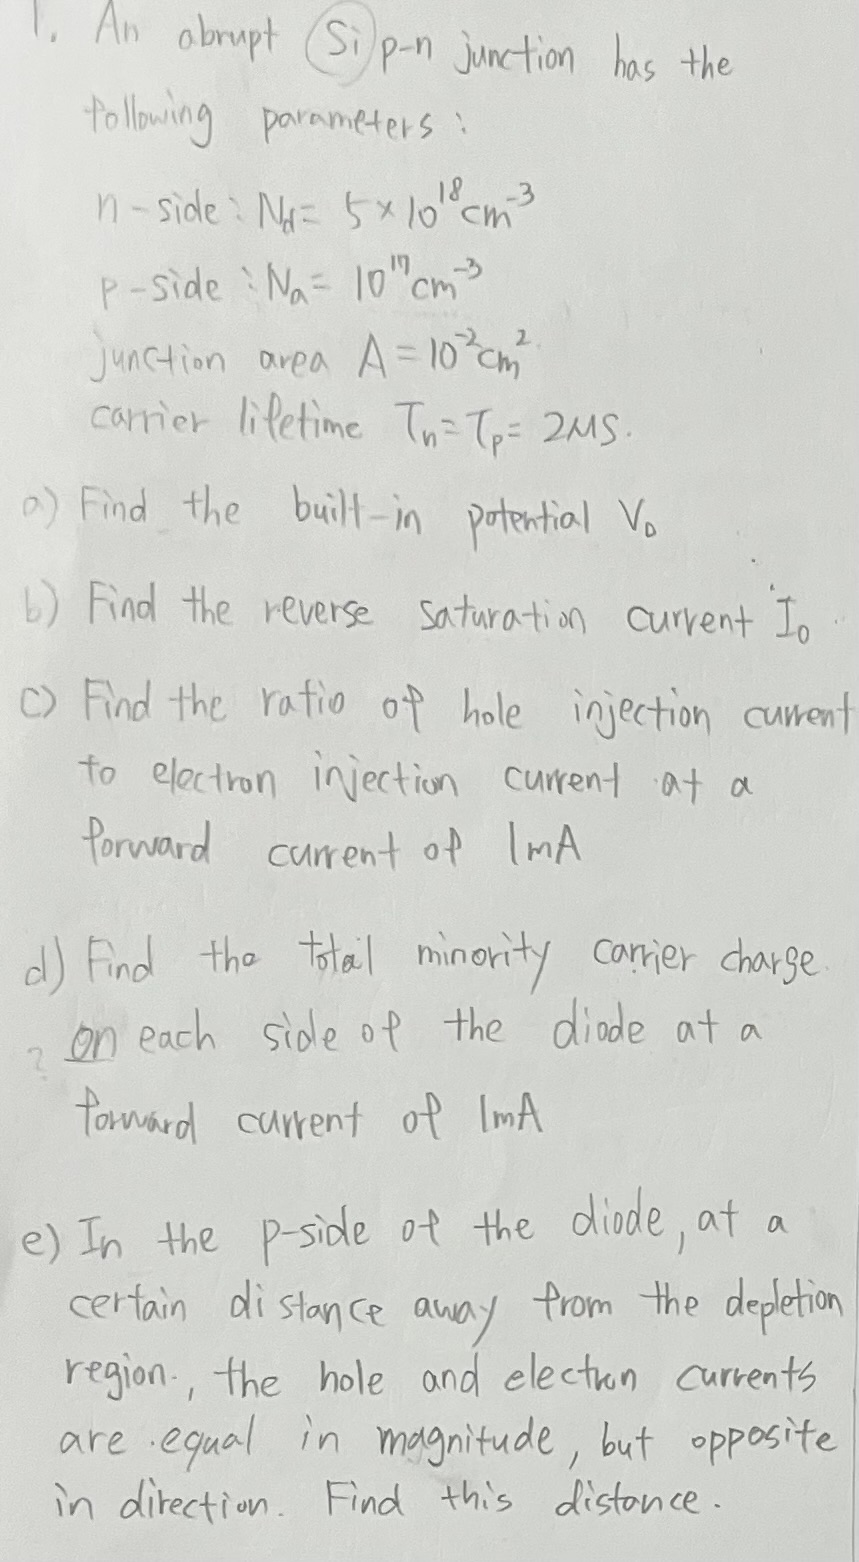 1. An abrupt Si p-n junction has the
following parameters:
n-side: Nd = 5 × 10^18 cm^-3
p-side: Na = 10^17 cm^-3
junction area A = 10^-2 cm^2
carrier lifetime τn = τp = 2μs.
a) Find the built-in potential V0
b) Find the reverse saturation current I0.
c) Find the ratio of hole injection current
to electron injection current at a
forward current of 1mA
d) Find the total minority carrier charge
? on each side of the diode at a
forward current of 1mA
e) In the p-side of the diode, at a
certain distance away from the depletion
region, the hole and electron currents
are equal in magnitude, but opposite
in direction. Find this distance.